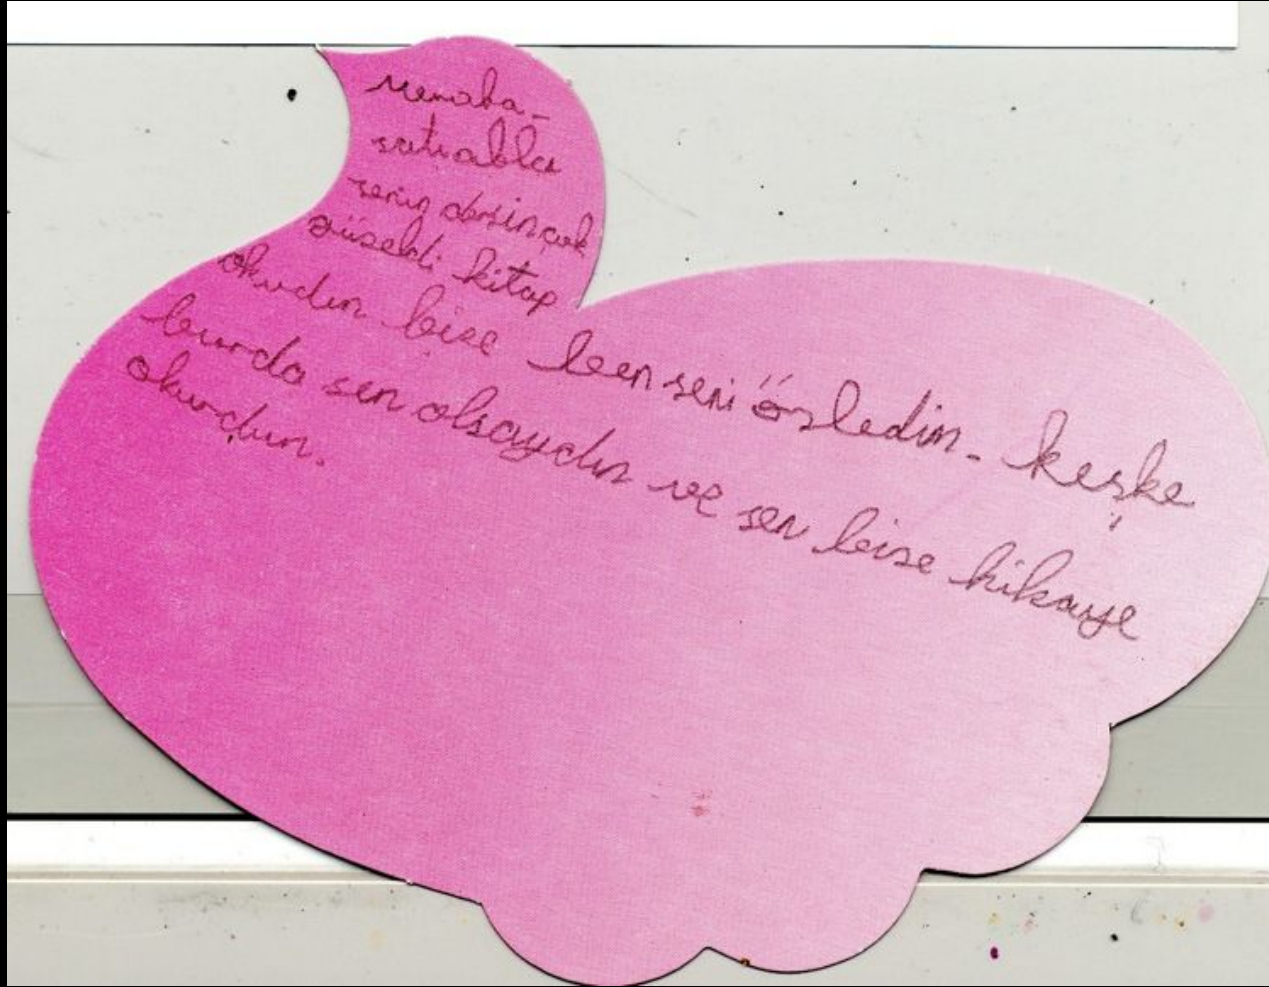 Meraba-
satıabla
senin dersin çok
güseldi kitap
okudun bise ben seni özledim. keşke
burda sen olsaydın ve sen bise hikaye
okurdun.